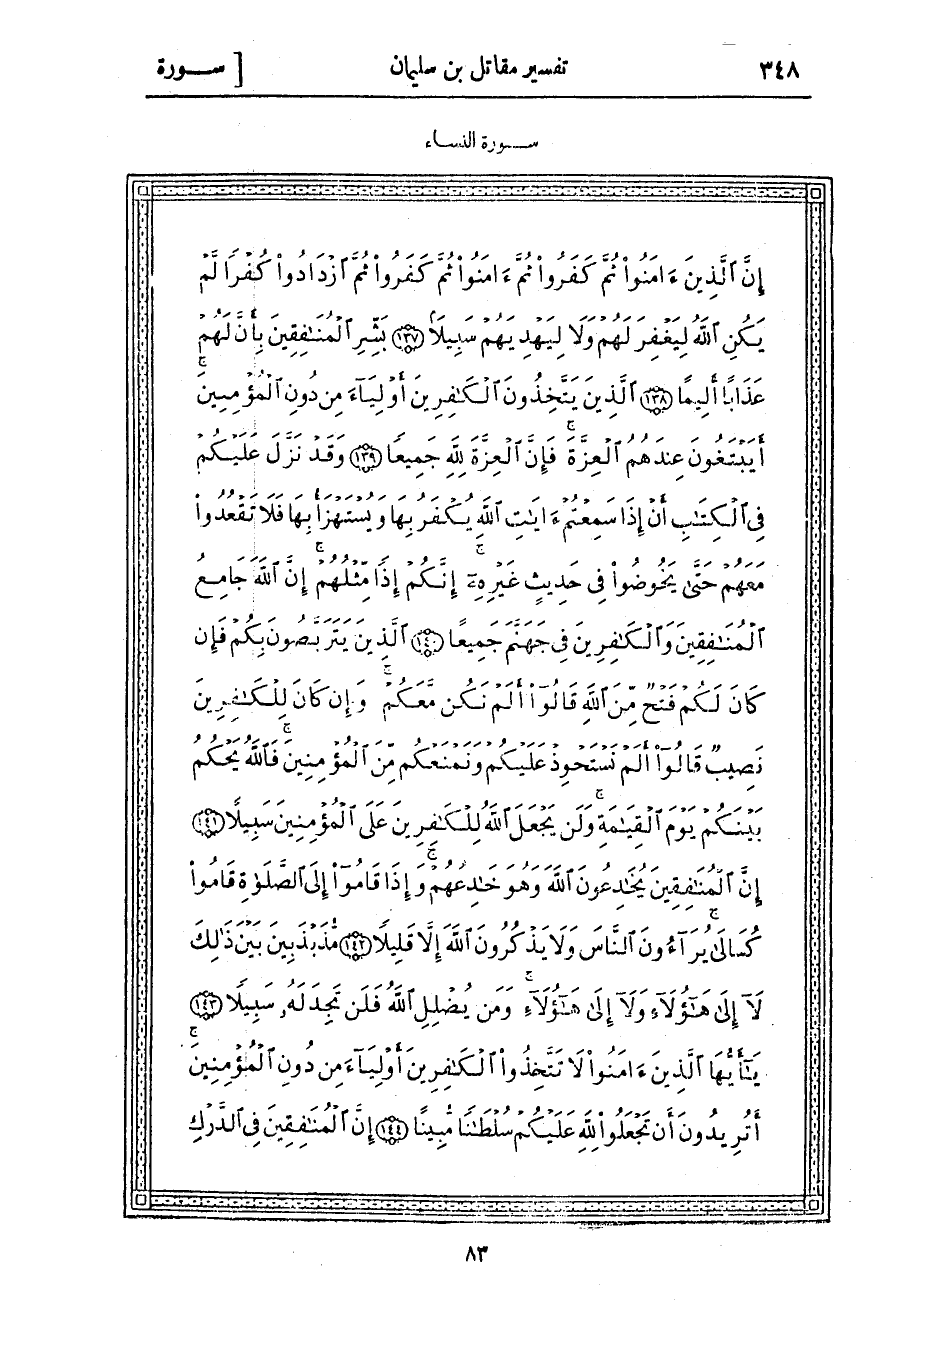 ٣٤٨ تفسير مقاتل بن سليمان [ ســورة
ســورة النساء
إِنَّ ٱلَّذِينَ ءَامَنُوا۟ ثُمَّ كَفَرُوا۟ ثُمَّ ءَامَنُوا۟ ثُمَّ كَفَرُوا۟ ثُمَّ ٱزْدَادُوا۟ كُفْرًا لَّمْ
يَكُنِ ٱللَّهُ لِيَغْفِرَ لَهُمْ وَلَا لِيَهْدِيَهُمْ سَبِيلًا ﴿١٣٧﴾ بَشِّرِ ٱلْمُنَٰفِقِينَ بِأَنَّ لَهُمْ
عَذَابًا أَلِيمًا ﴿١٣٨﴾ ٱلَّذِينَ يَتَّخِذُونَ ٱلْكَٰفِرِينَ أَوْلِيَآءَ مِن دُونِ ٱلْمُؤْمِنِينَ ۚ
أَيَبْتَغُونَ عِندَهُمُ ٱلْعِزَّةَ فَإِنَّ ٱلْعِزَّةَ لِلَّهِ جَمِيعًا ﴿١٣٩﴾ وَقَدْ نَزَّلَ عَلَيْكُمْ
فِى ٱلْكِتَٰبِ أَنْ إِذَا سَمِعْتُمْ ءَايَٰتِ ٱللَّهِ يُكْفَرُ بِهَا وَيُسْتَهْزَأُ بِهَا فَلَا تَقْعُدُوا۟
مَعَهُمْ حَتَّىٰ يَخُوضُوا۟ فِى حَدِيثٍ غَيْرِهِۦٓ ۚ إِنَّكُمْ إِذًا مِّثْلُهُمْ ۗ إِنَّ ٱللَّهَ جَامِعُ
ٱلْمُنَٰفِقِينَ وَٱلْكَٰفِرِينَ فِى جَهَنَّمَ جَمِيعًا ﴿١٤٠﴾ ٱلَّذِينَ يَتَرَبَّصُونَ بِكُمْ فَإِن
كَانَ لَكُمْ فَتْحٌ مِّنَ ٱللَّهِ قَالُوٓا۟ أَلَمْ نَكُن مَّعَكُمْ ۚ وَإِن كَانَ لِلْكَٰفِرِينَ
نَصِيبٌ قَالُوٓا۟ أَلَمْ نَسْتَحْوِذْ عَلَيْكُمْ وَنَمْنَعْكُم مِّنَ ٱلْمُؤْمِنِينَ ۚ فَٱللَّهُ يَحْكُمُ
بَيْنَكُمْ يَوْمَ ٱلْقِيَٰمَةِ ۚ وَلَن يَجْعَلَ ٱللَّهُ لِلْكَٰفِرِينَ عَلَى ٱلْمُؤْمِنِينَ سَبِيلًا ﴿١٤١﴾
إِنَّ ٱلْمُنَٰفِقِينَ يُخَٰدِعُونَ ٱللَّهَ وَهُوَ خَٰدِعُهُمْ ۚ وَإِذَا قَامُوٓا۟ إِلَى ٱلصَّلَوٰةِ قَامُوا۟
كُسَالَىٰ ۚ يُرَآءُونَ ٱلنَّاسَ وَلَا يَذْكُرُونَ ٱللَّهَ إِلَّا قَلِيلًا ﴿١٤٢﴾ مُّذَبْذَبِينَ بَيْنَ ذَٰلِكَ
لَآ إِلَىٰ هَٰٓؤُلَآءِ وَلَآ إِلَىٰ هَٰٓؤُلَآءِ ۚ وَمَن يُضْلِلِ ٱللَّهُ فَلَن تَجِدَ لَهُۥ سَبِيلًا ﴿١٤٣﴾
يَٰٓأَيُّهَا ٱلَّذِينَ ءَامَنُوا۟ لَا تَتَّخِذُوا۟ ٱلْكَٰفِرِينَ أَوْلِيَآءَ مِن دُونِ ٱلْمُؤْمِنِينَ ۚ
أَتُرِيدُونَ أَن تَجْعَلُوا۟ لِلَّهِ عَلَيْكُمْ سُلْطَٰنًا مُّبِينًا ﴿١٤٤﴾ إِنَّ ٱلْمُنَٰفِقِينَ فِى ٱلدَّرْكِ
٨٣